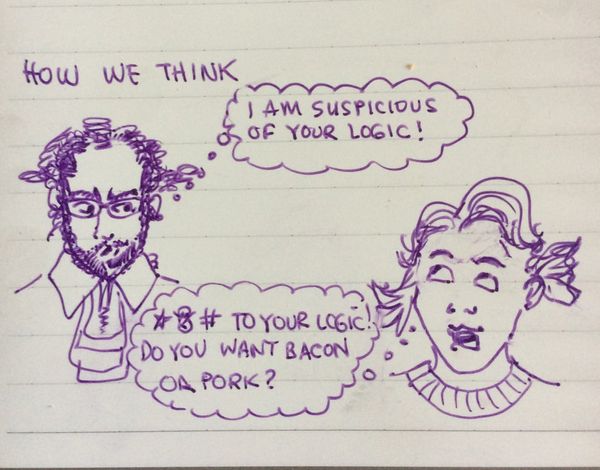 HOW WE THINK
I AM SUSPICIOUS
OF YOUR LOGIC!
*8# TO YOUR LOGIC!
DO YOU WANT BACON
OR PORK?